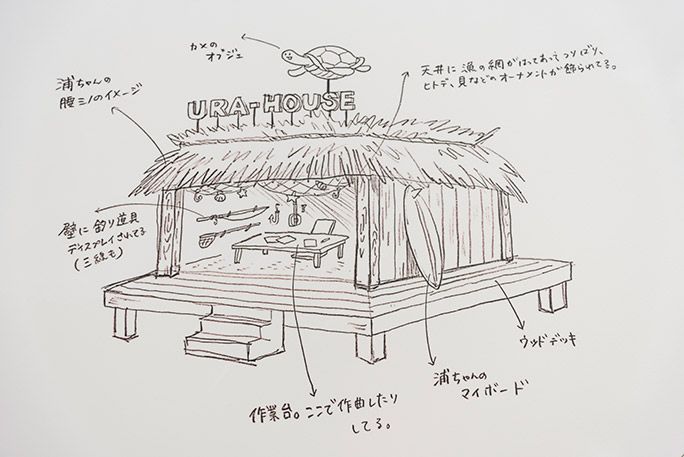 カメの
オブジェ
浦ちゃんの
腰ミノのイメージ
天井に漁の網がはってあってつりばり、
ヒトデ、貝などのオーナメントが飾られてる。
URA-HOUSE
壁に釣り道具
ディスプレイされてる
(三線も)
ウッドデッキ
浦ちゃんの
マイボード
作業台。ここで作曲したり
してる。